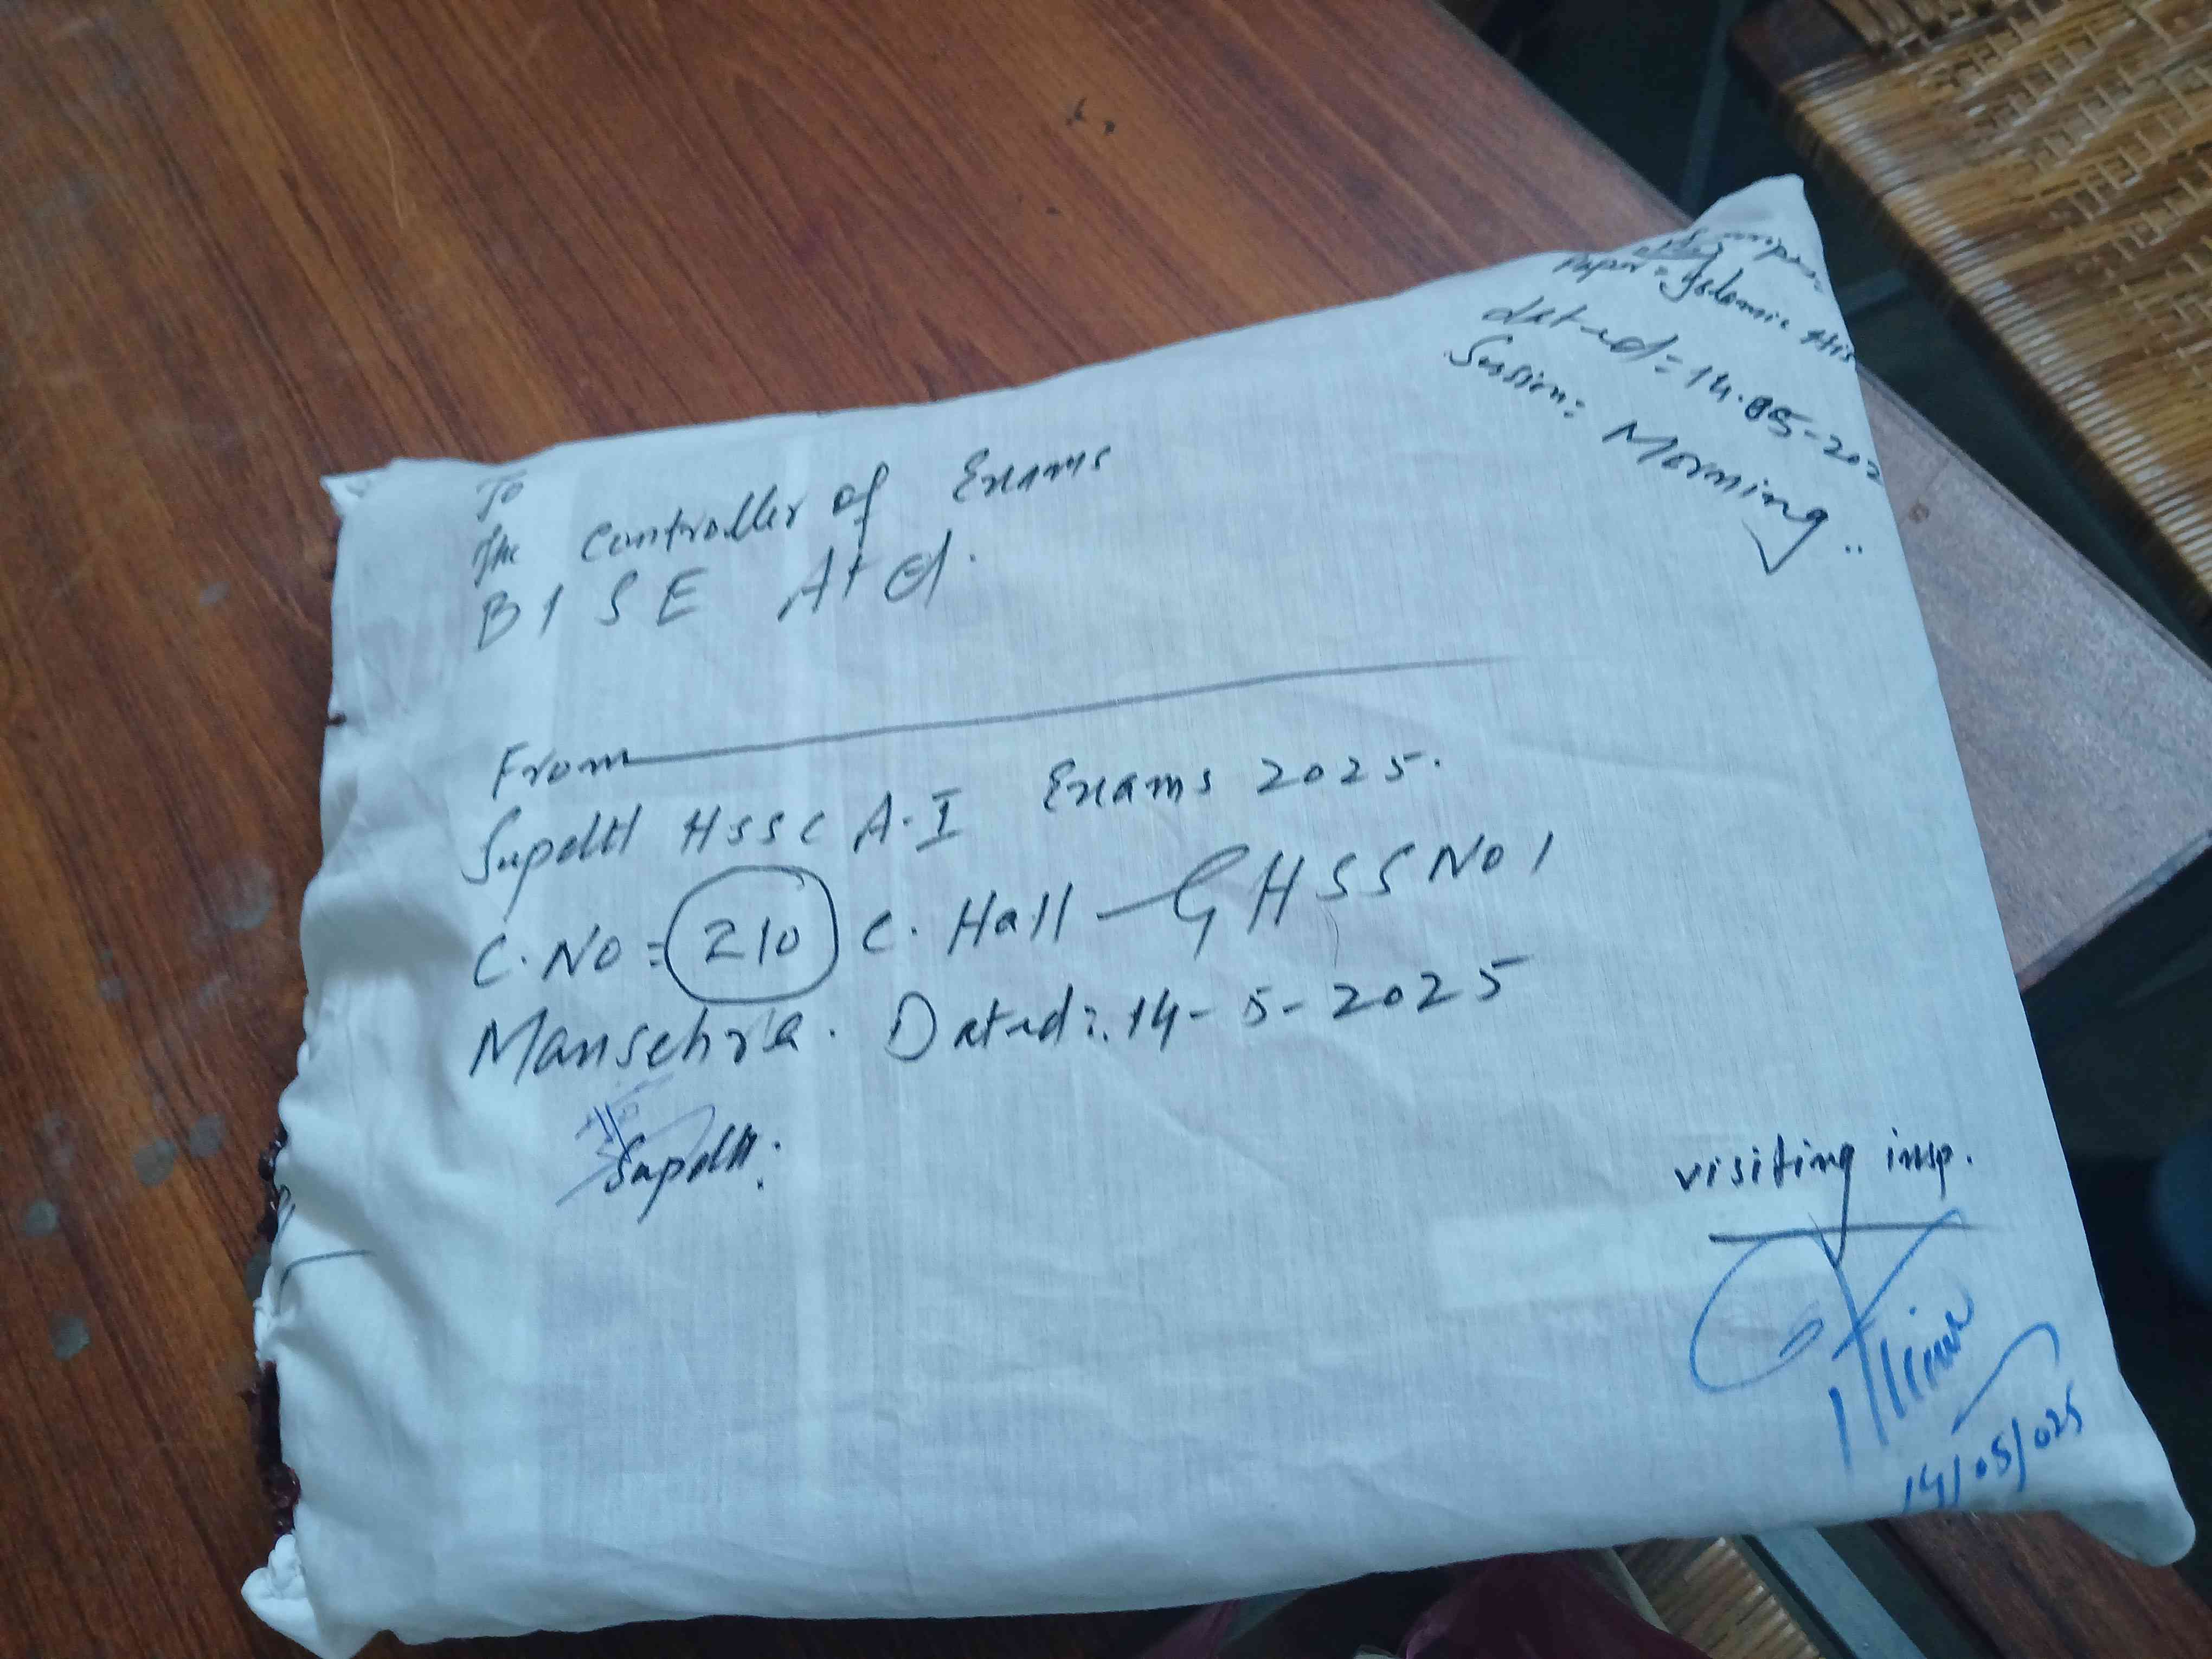 Paper = Islamic His
dated = 14.05-202
Session = Morning
To
The Controller of Exams
BISE Atd.
From
Supdtt HSSC A-I Exams 2025.
C.No = 210 C. Hall GHSS No 1
Mansehra. Dated:. 14-5-2025
Supdtt:
visiting insp.
14/05/025